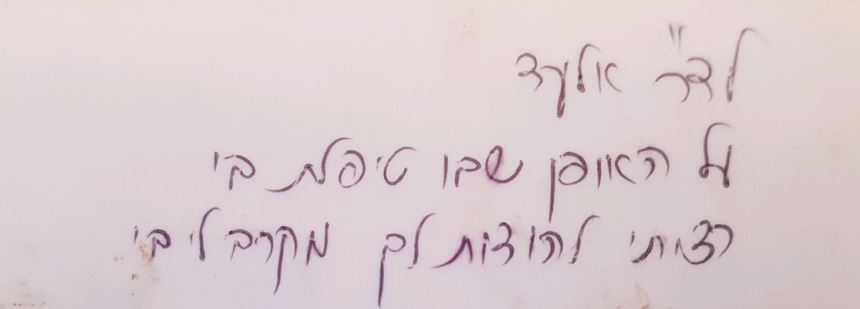 לד"ר אלעד
על האופן שבו טיפלת בי
רציתי להודות לך מקרב ליבי